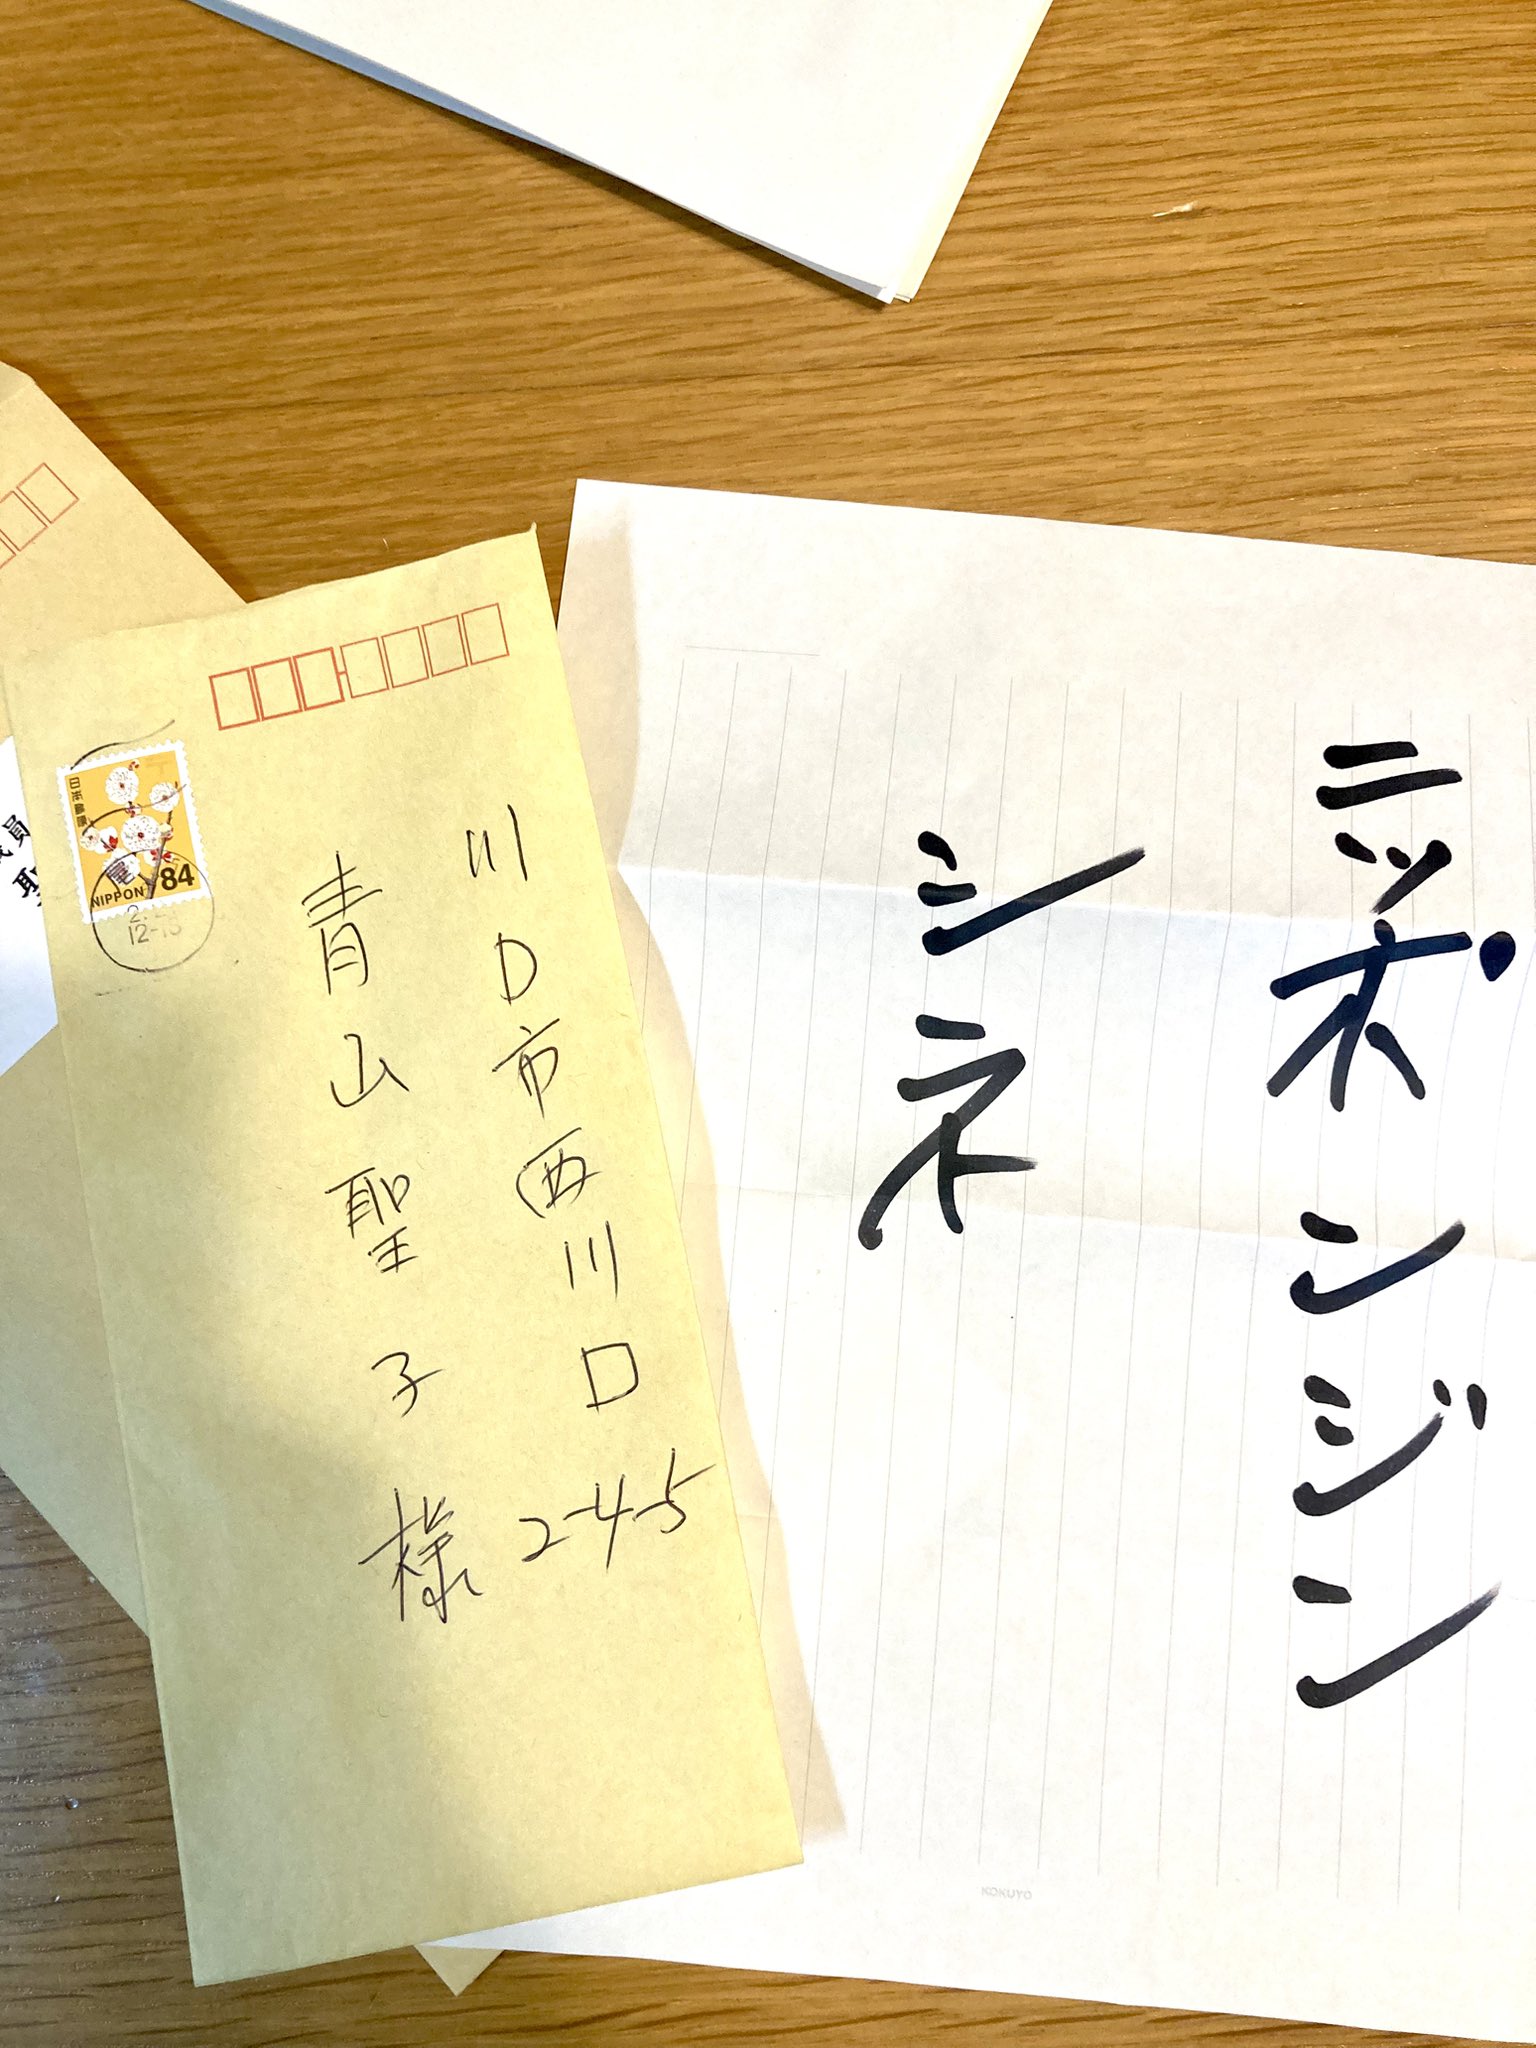 ニッポンジン
シネ
川口市西川口2-4-5
青山聖子様
日本郵便
NIPPON 84
12-18
KOKUYO